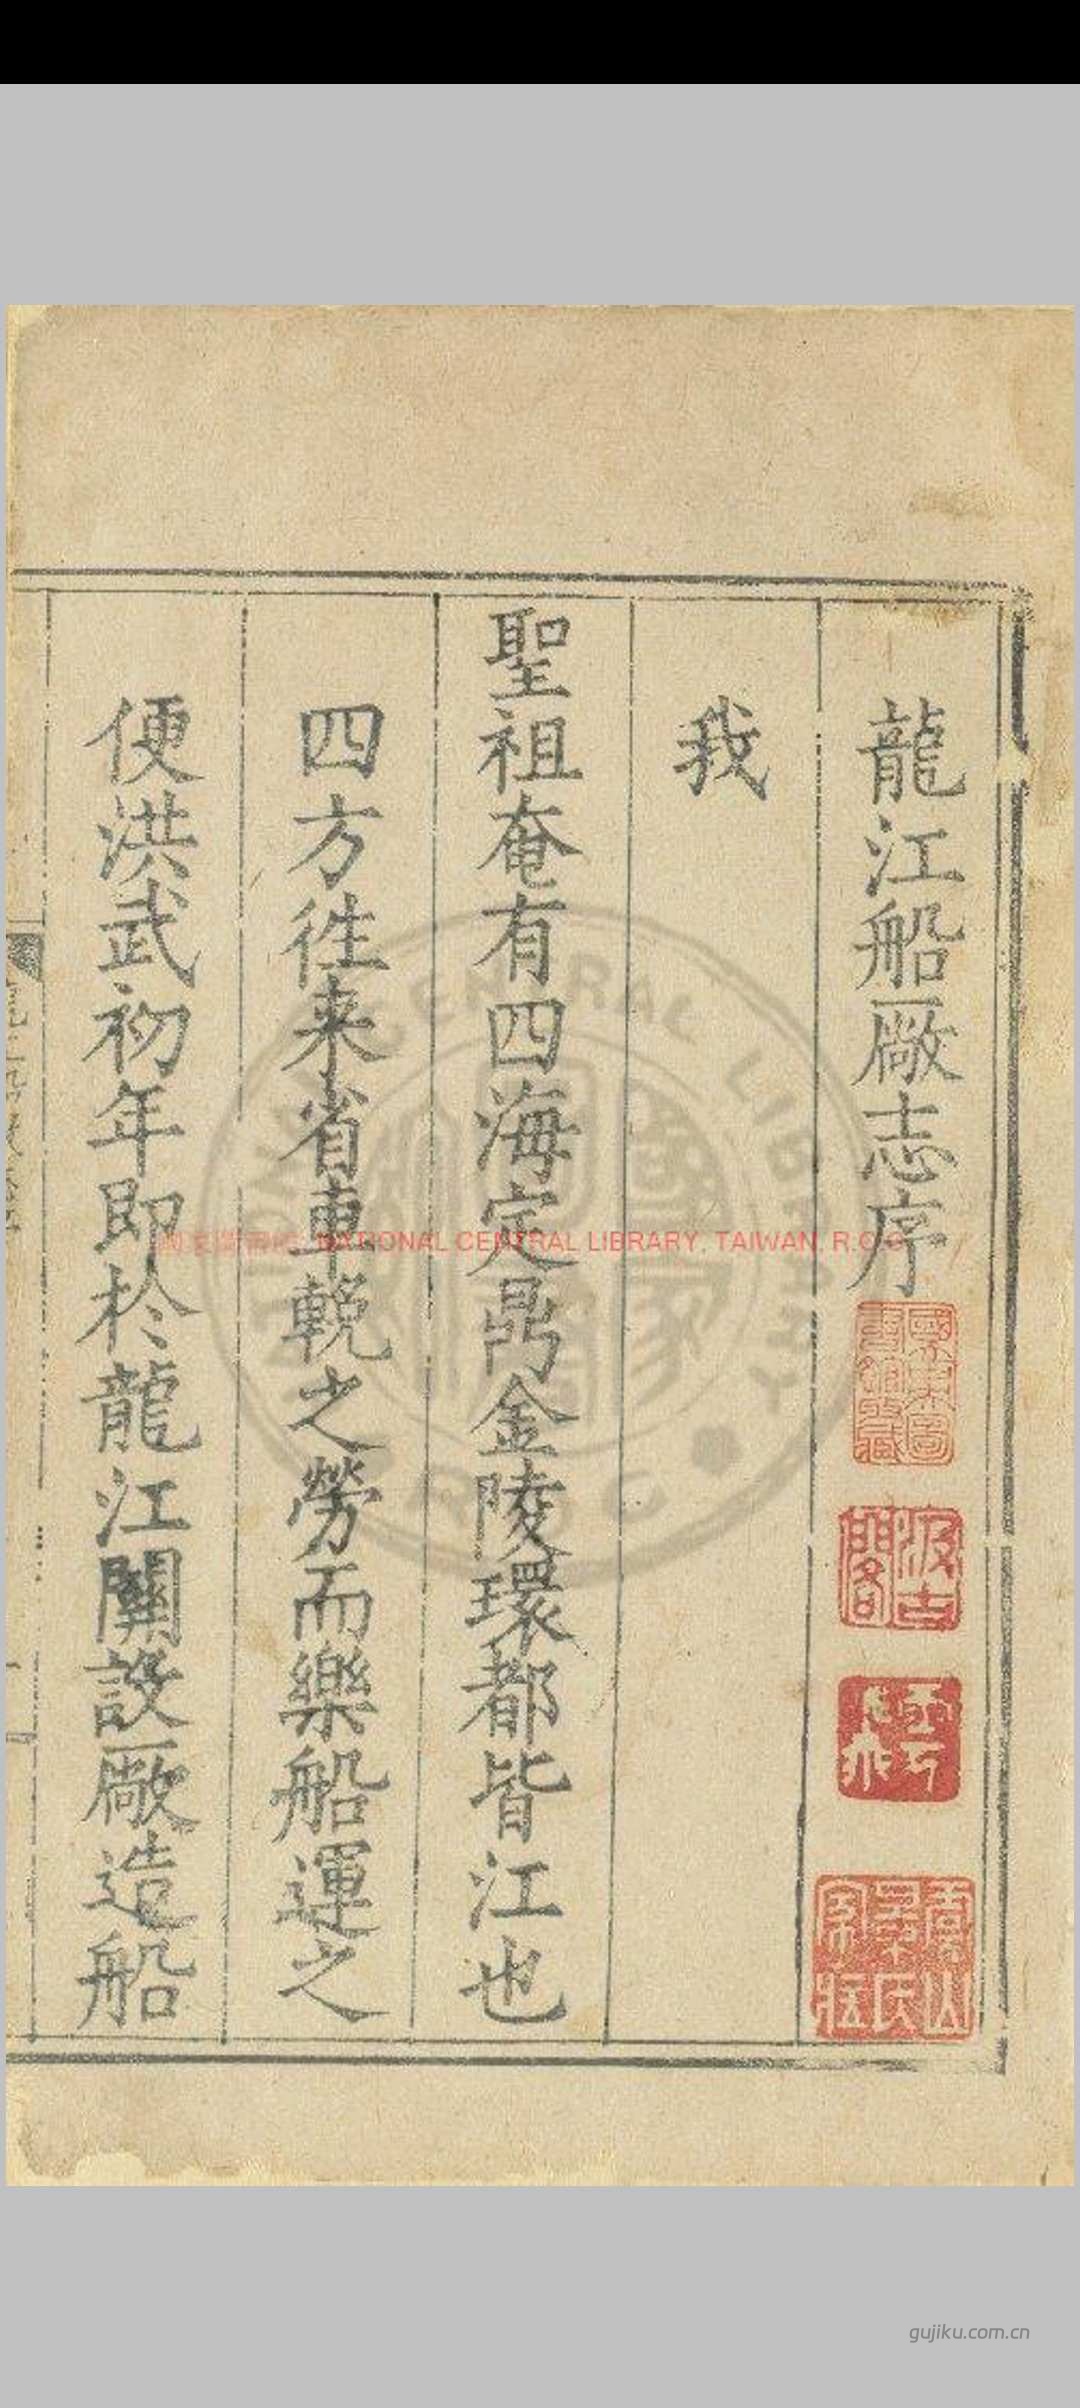 龍江船廠志序
我
聖祖奄有四海定鼎金陵環都皆江也
四方徃来省車輓之勞而樂船運之
便洪武初年即於龍江關設廠造船
國家圖書館收藏
汲古閣
NATIONAL CENTRAL LIBRARY, TAIWAN, R.O.C
gujiku.com.cn